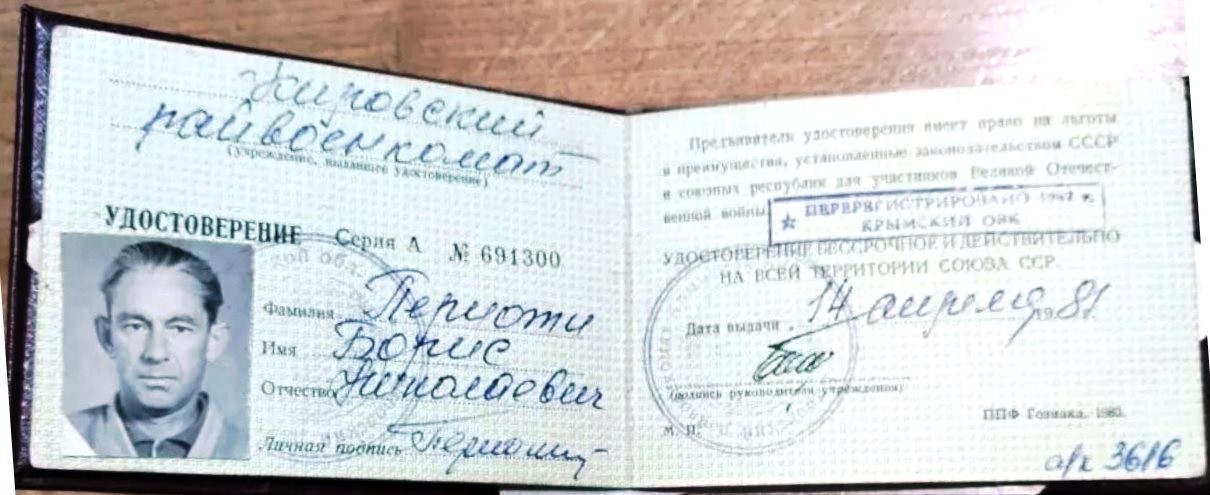 Кировский
райвоенкомат
(учреждение, выдавшее удостоверение)
УДОСТОВЕРЕНИЕ Серия А № 691300
Фамилия
Имя Борис
Отчество Николаевич
Личная подпись
Предъявитель удостоверения имеет право на льготы
и преимущества, установленные законодательством СССР
и союзных республик для участников Великой Отечест-
венной войны
ПЕРЕРЕГИСТРИРОВАНО
КРЫМСКИЙ ОВК
УДОСТОВЕРЕНИЕ БЕССРОЧНОЕ И ДЕЙСТВИТЕЛЬНО
НА ВСЕЙ ТЕРРИТОРИИ СОЮЗА ССР.
Дата выдачи 14 апреля 1981
(подпись руководителя учреждения)
М. П.
ППФ Гознака. 1980.
а/к 3616